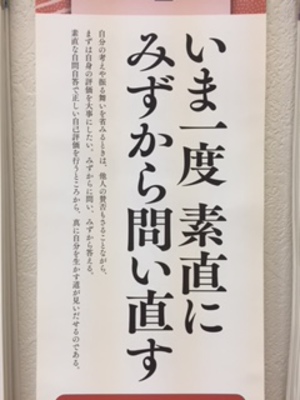 いま一度 素直に
みずから問い直す
自分の考えや振る舞いを省みるときは、他人の賛否もさることながら、
まずは自身の評価を大事にしたい。みずからに問い、みずから答える。
素直な自問自答で正しい自己評価を行うところから、真に自分を生かす道が見いだせるのである。